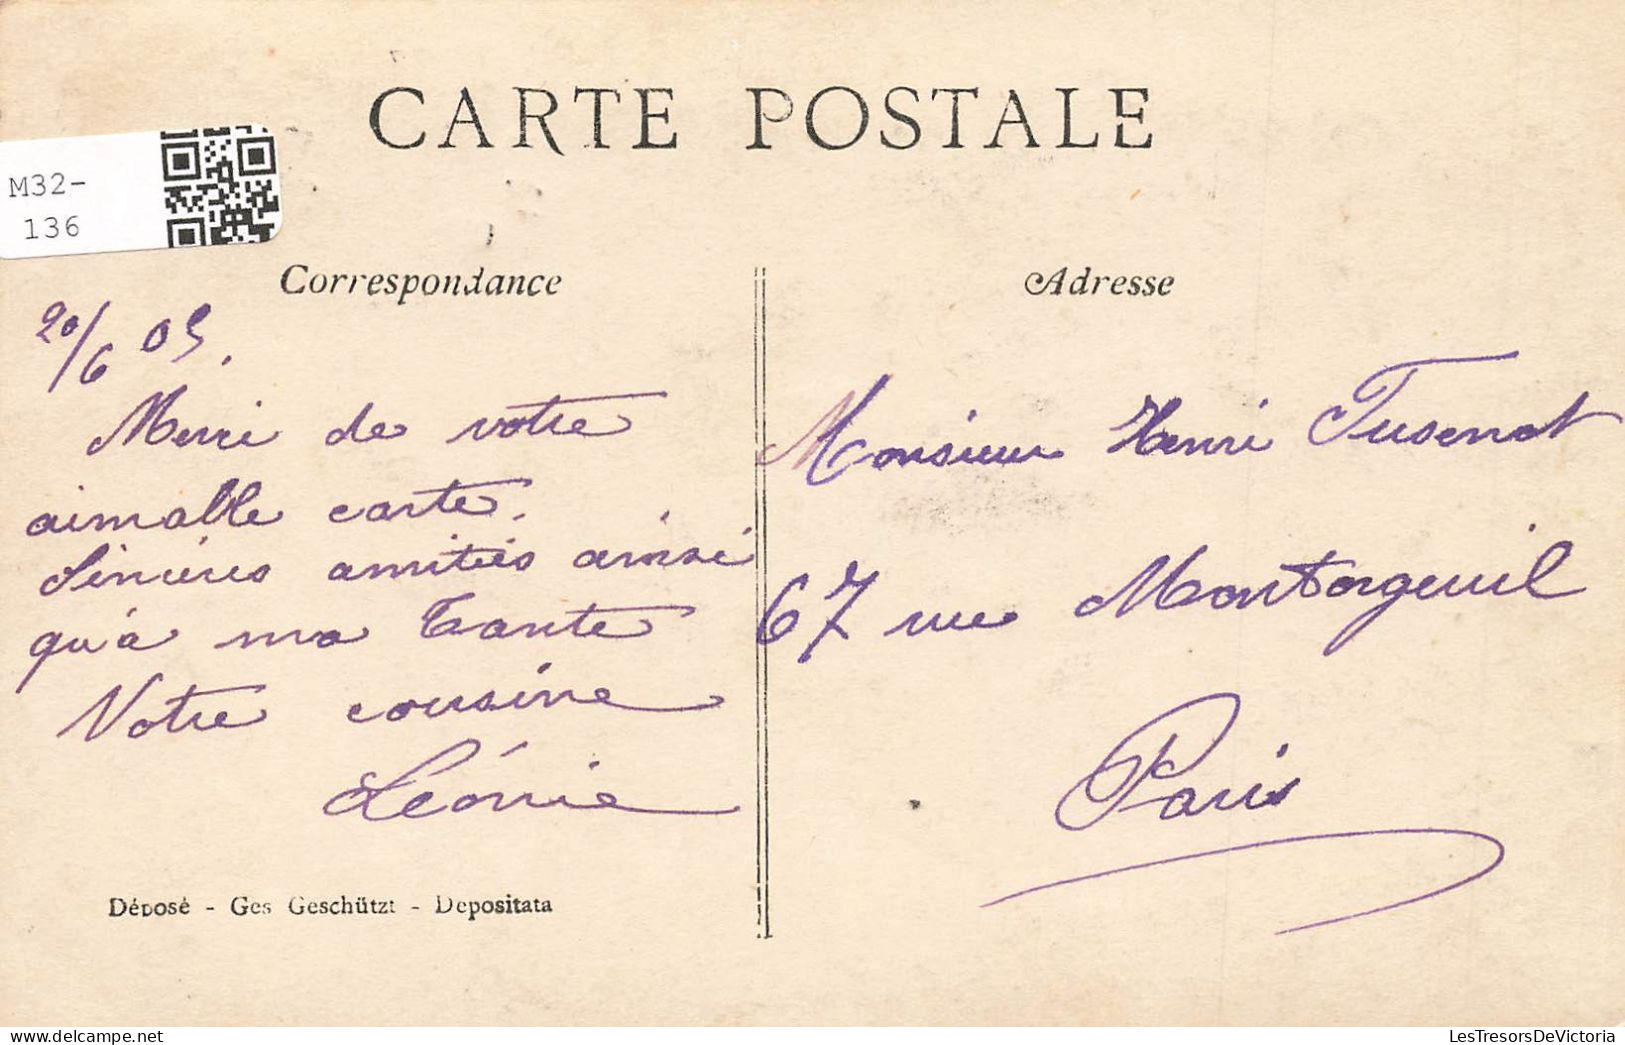 CARTE POSTALE
M32-
136
Correspondance
20/6 05.
Merci de votre
aimable carte.
Sincères amitiés ainsi
qu'à ma Tante
Votre cousine
Léonie
Déposé - Ges Geschützt - Depositata
Adresse
Monsieur Henri Tusenot
67 rue Montorgeuil
Paris
delcampe.net
LesTresorsDeVictoria